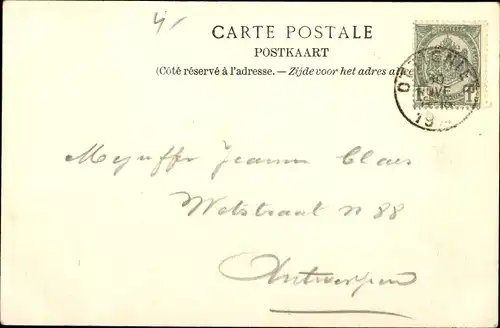 4,-
CARTE POSTALE
POSTKAART
(Côté réservé à l'adresse. — Zijde voor het adres
Mejuffer Jeanne Claes
Wetstraat N 88
Antwerpen